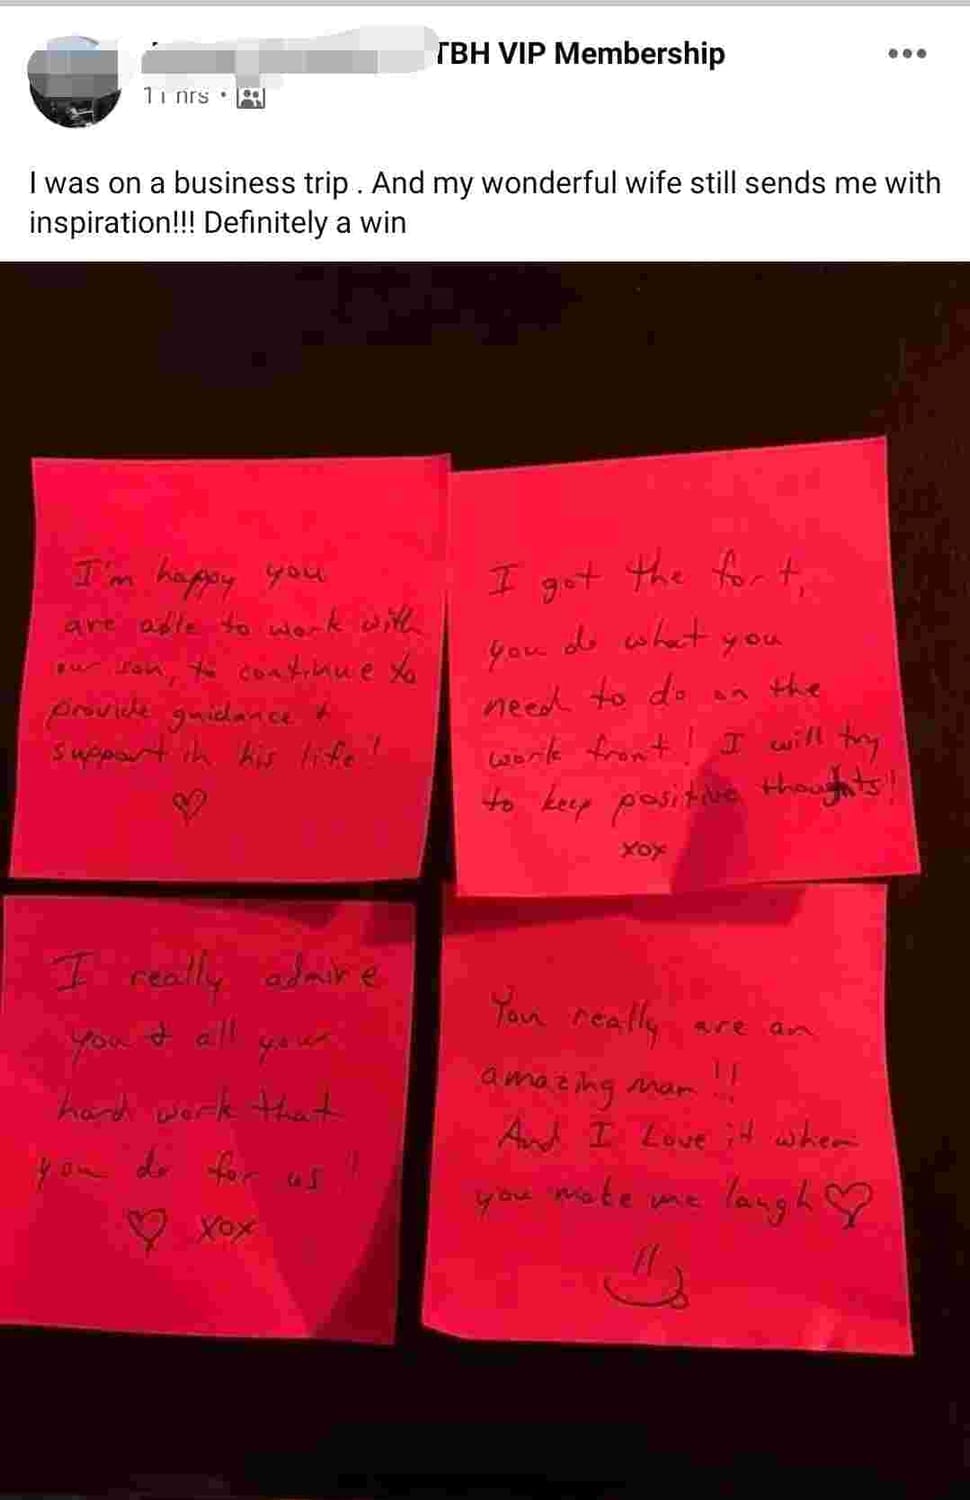 TBH VIP Membership
11 hrs
I was on a business trip . And my wonderful wife still sends me with
inspiration!!! Definitely a win
I'm happy you
are able to work with
our son, to continue to
provide guidance +
support in his life!
I got the fort,
you do what you
need to do on the
work front! I will try
to keep positive thoughts!
xox
I really admire
you & all your
hard work that
you do for us!!
xox
You really are an
amazing man!!
And I Love it when
you make me laugh